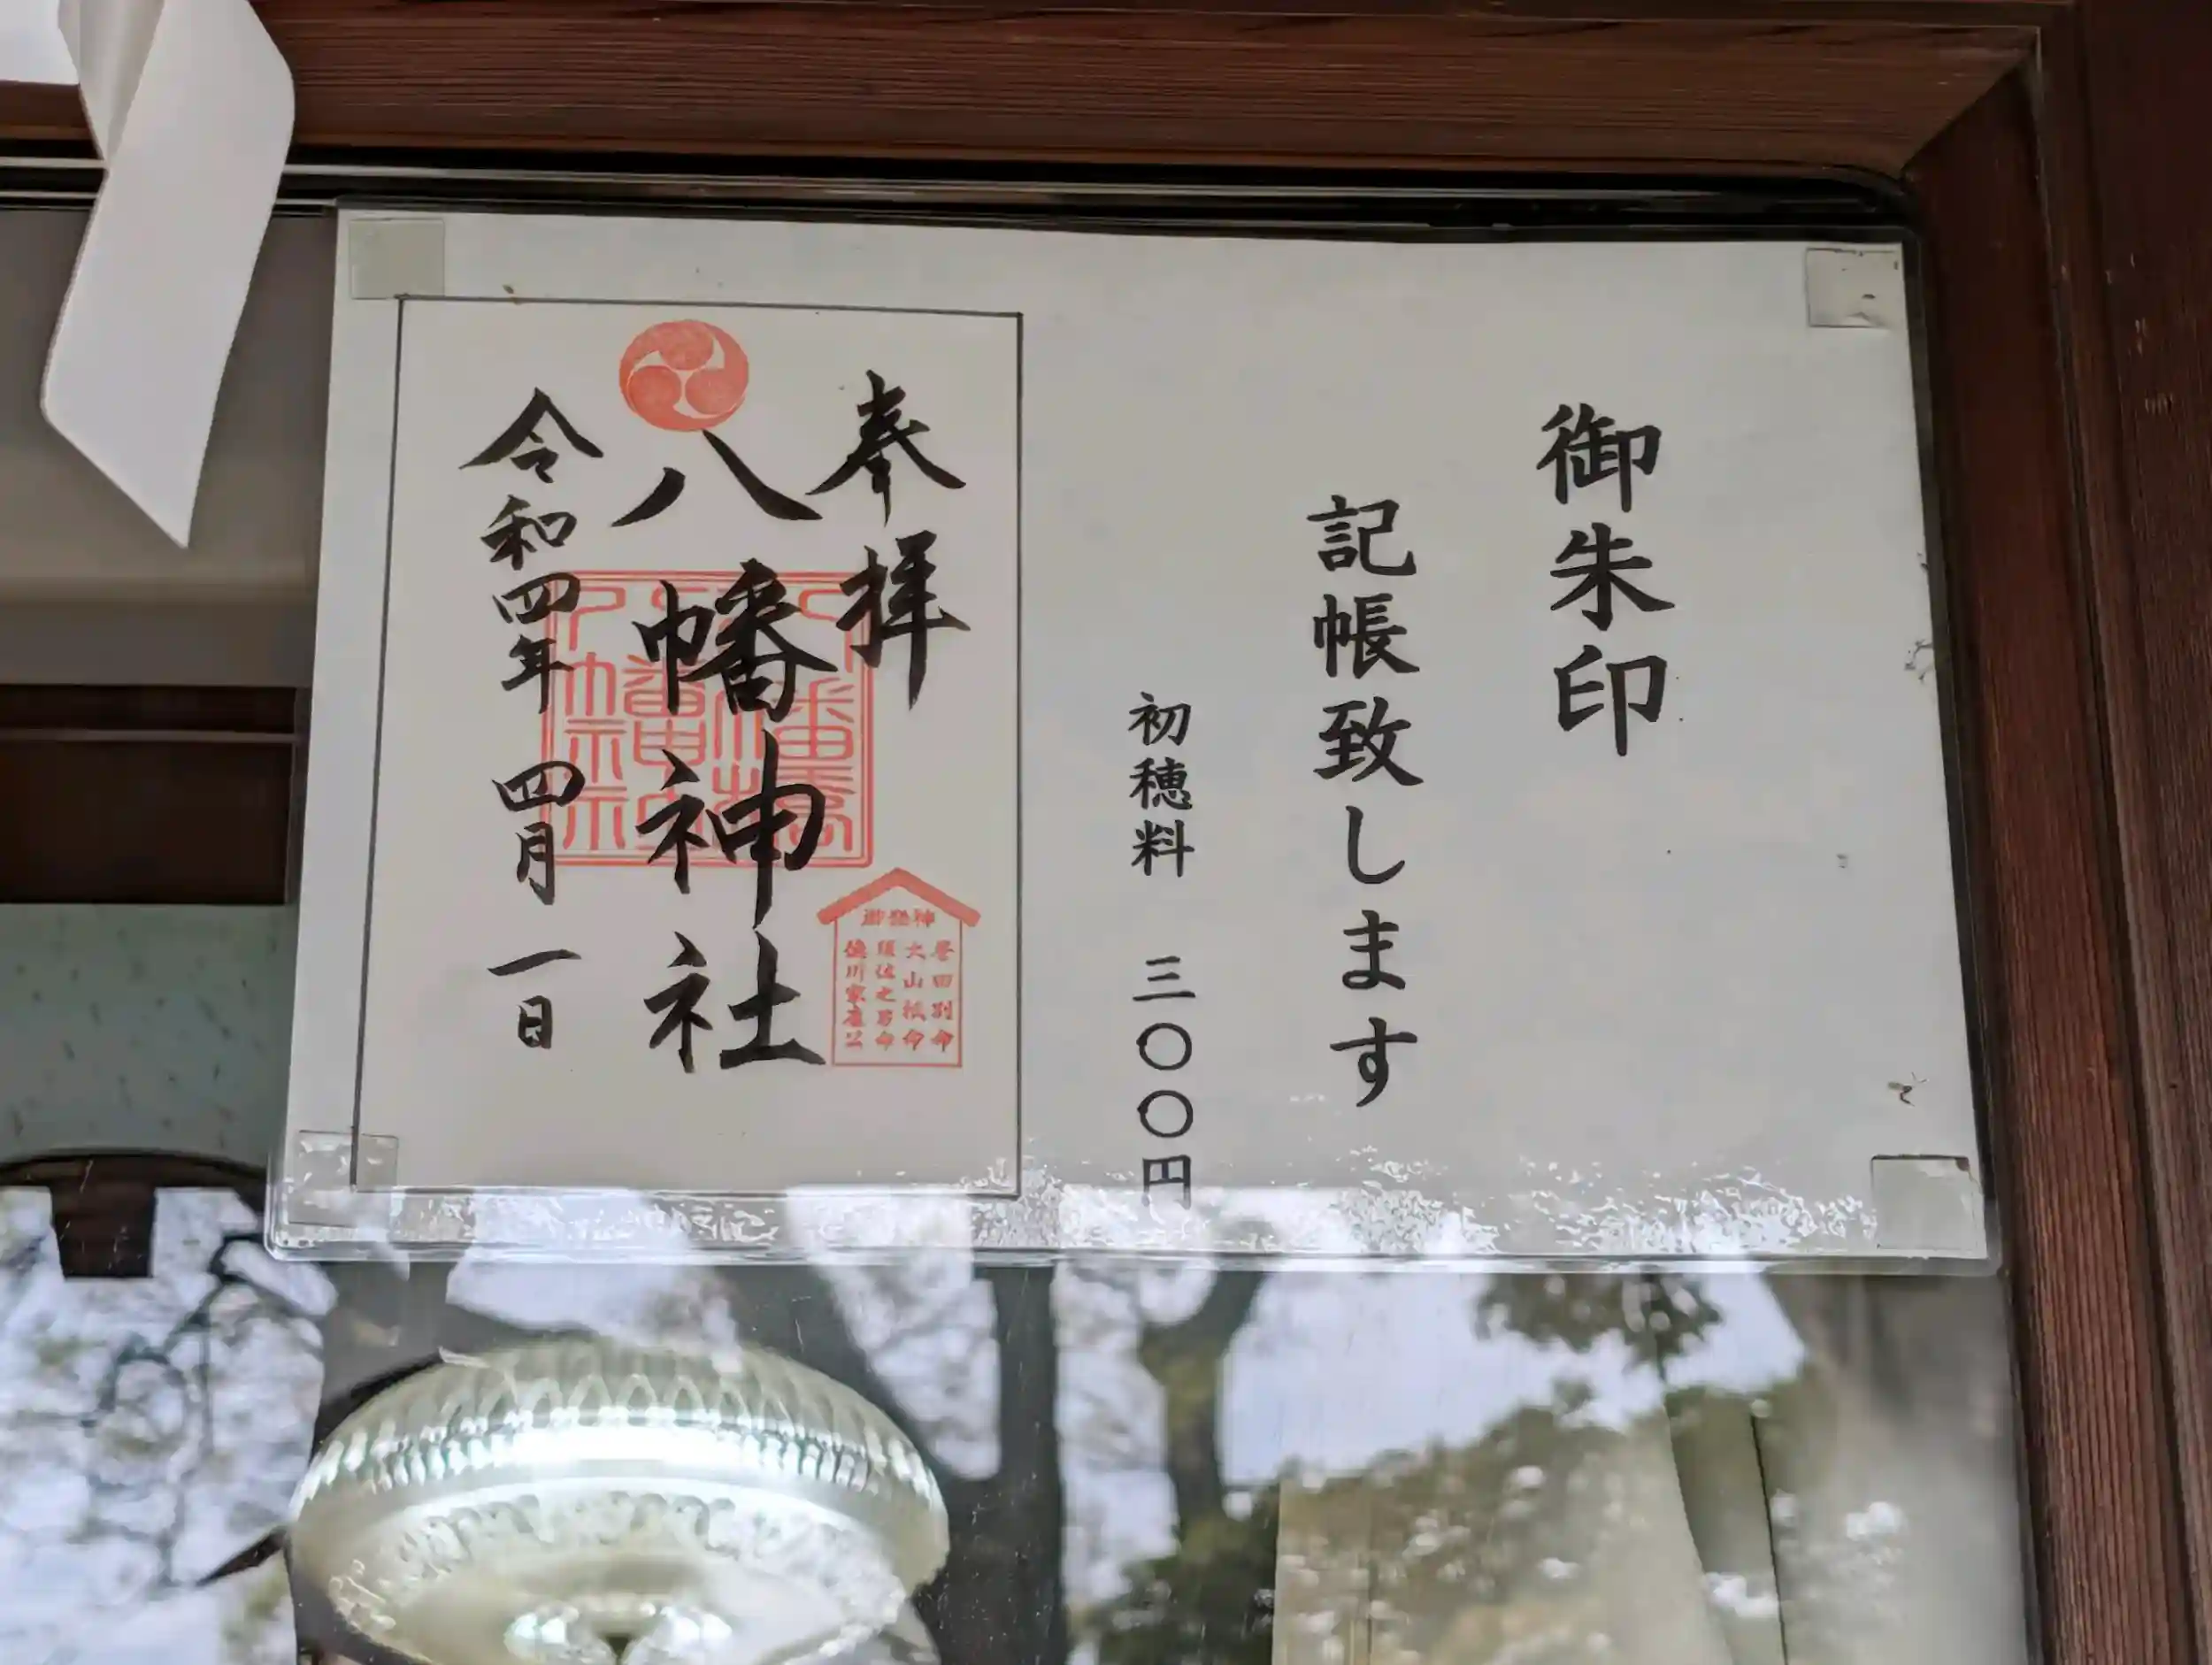 御朱印
記帳致します
初穂料 三〇〇円
奉拝
八幡神社
令和四年 四月 一日
御祭神
誉田別命
大山祇命
須佐之男命
徳川家康公